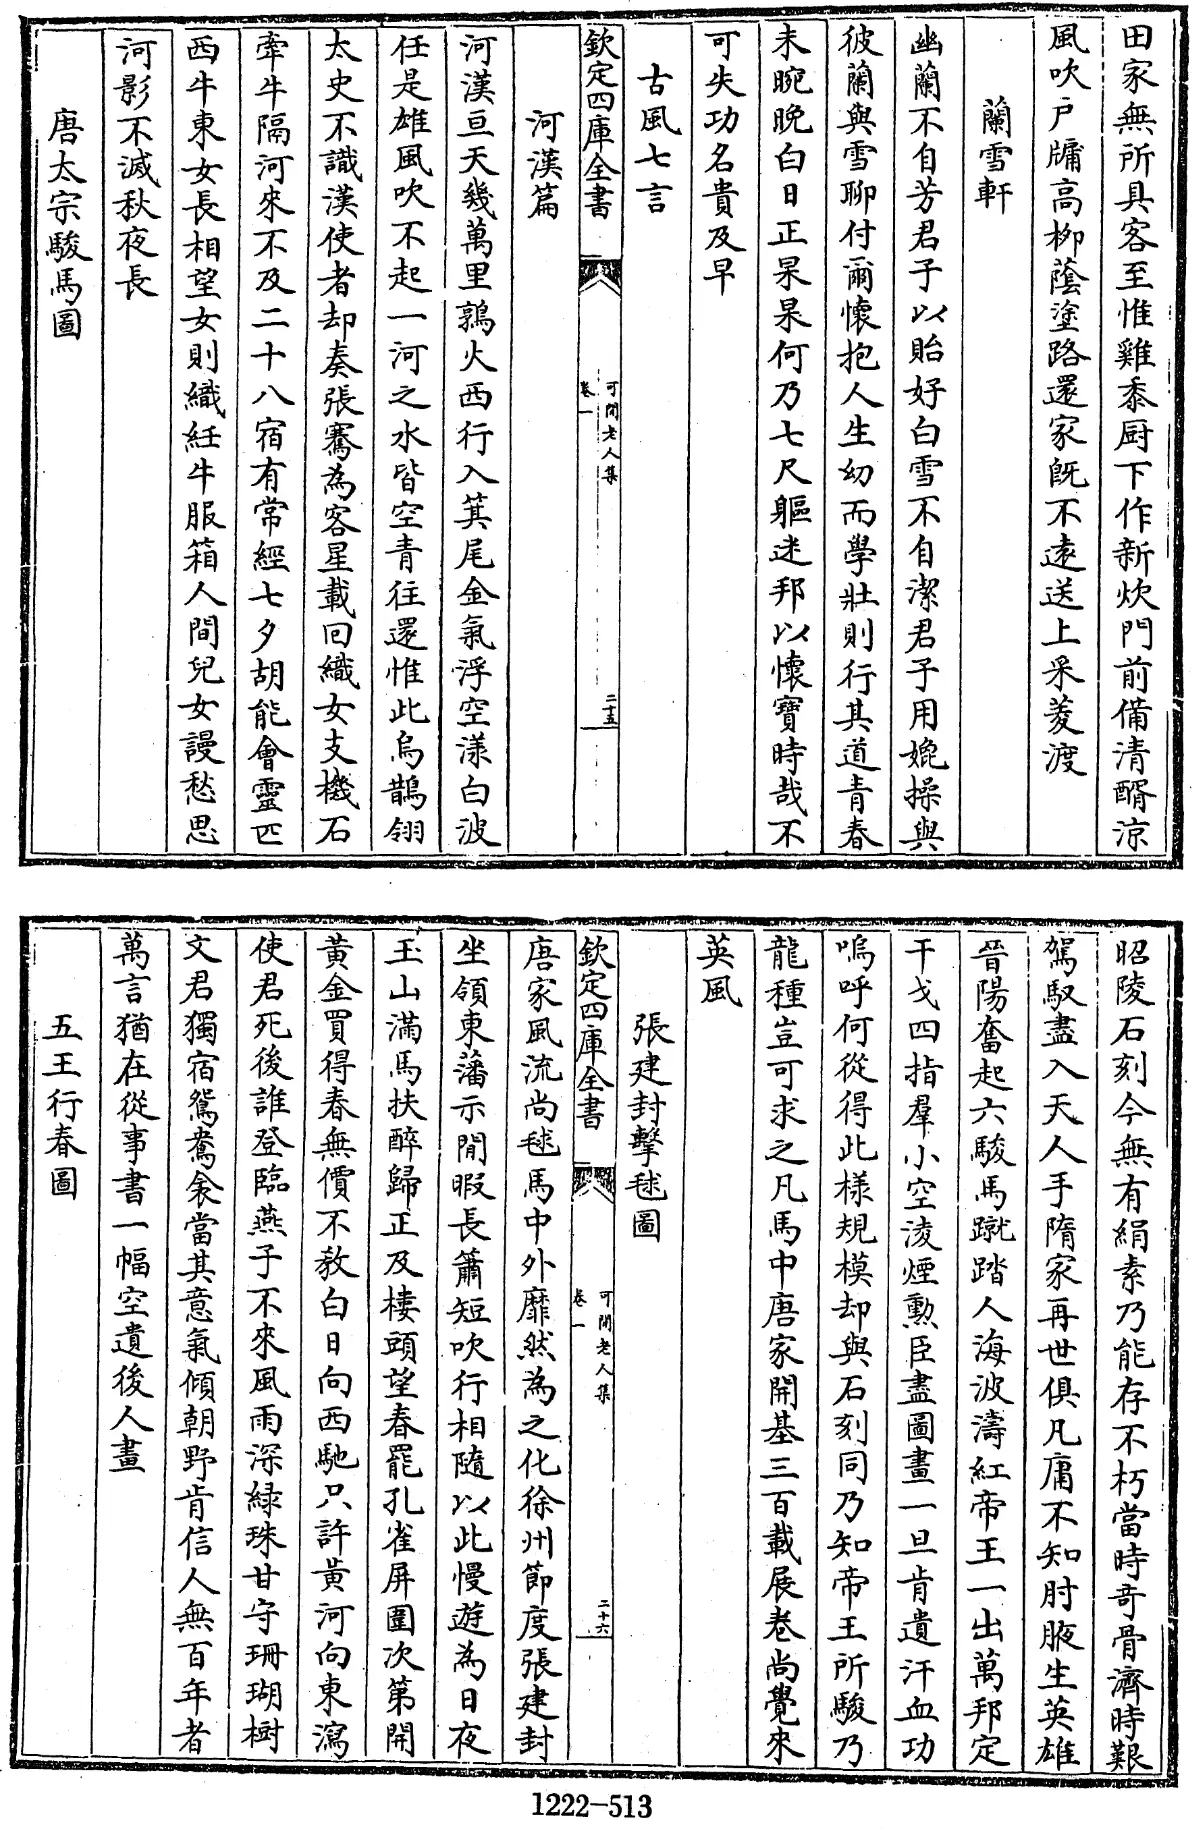 田家無所具客至惟雞黍厨下作新炊門前備清醑涼
風吹戸牗高柳蔭塗路還家既不遠送上采菱渡
蘭雪軒
幽蘭不自芳君子以貽好白雪不自潔君子用媲操與
彼蘭與雪聊付爾懷抱人生幼而學壯則行其道青春
未晼晚白日正杲杲何乃七尺軀迷邦以懷寶時哉不
可失功名貴及早
古風七言
欽定四庫全書
可閒老人集
卷一
二十五
河漢篇
河漢亘天幾萬里鶉火西行入箕尾金氣浮空漾白波
任是雄風吹不起一河之水皆空青往還惟此烏鵲翎
太史不識漢使者却奏張騫為客星載回織女支機石
牽牛隔河來不及二十八宿有常經七夕胡能會靈匹
西牛東女長相望女則織紝牛服箱人間兒女謾愁思
河影不滅秋夜長
唐太宗駿馬圖
昭陵石刻今無有絹素乃能存不朽當時竒骨濟時艱
駕馭盡入天人手隋家再世俱凡庸不知肘腋生英雄
晉陽奮起六駿馬蹴踏人海波濤紅帝王一出萬邦定
干戈四指羣小空淩煙勲臣盡圖畫一旦肯遺汗血功
嗚呼何從得此様規模却與石刻同乃知帝王所駿乃
龍種豈可求之凡馬中唐家開基三百載展卷尚覺來
英風
張建封擊毬圖
欽定四庫全書
可閒老人集
卷一
二十六
唐家風流尚毬馬中外靡然為之化徐州節度張建封
坐領東藩示閒暇長簫短吹行相隨以此慢遊為日夜
玉山滿馬扶醉歸正及樓頭望春罷孔雀屏圍次第開
黃金買得春無價不教白日向西馳只許黃河向東瀉
使君死後誰登臨燕子不來風雨深緑珠甘守珊瑚樹
文君獨宿鴛鴦衾當其意氣傾朝野肯信人無百年者
萬言猶在從事書一幅空遺後人畫
五王行春圖
1222-513